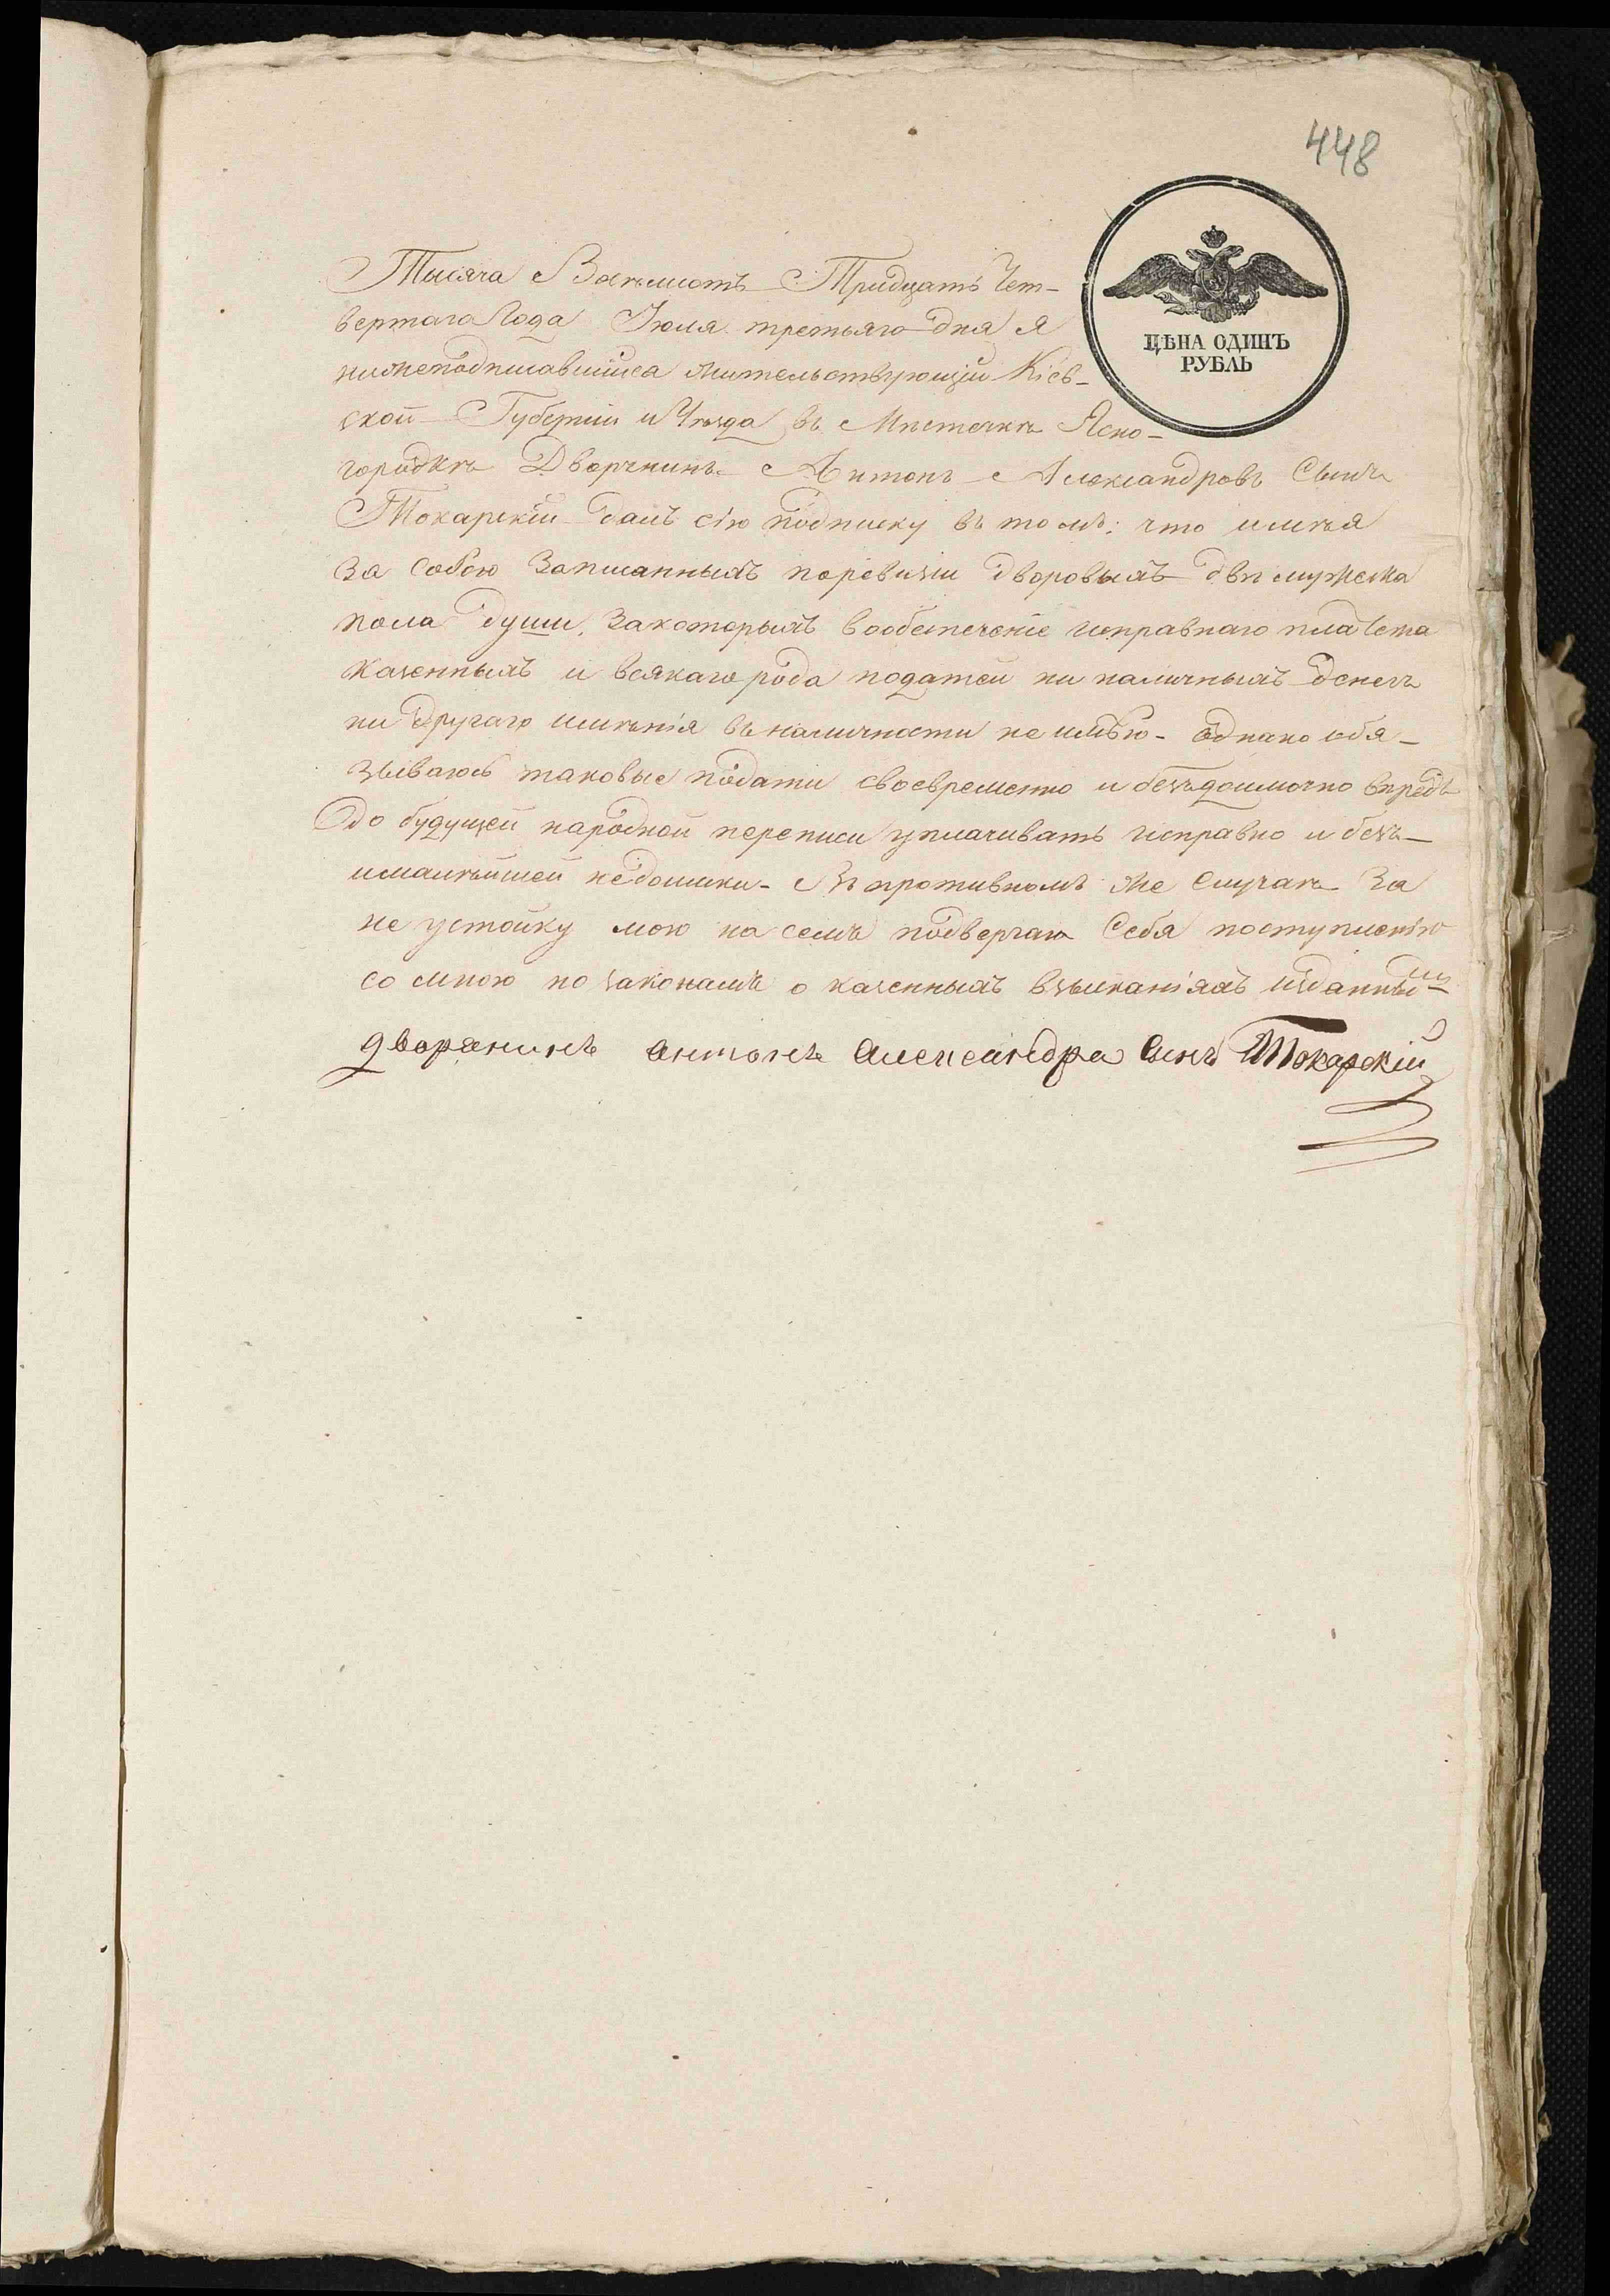 448
ЦѢНА ОДИНЪ
РУБЛЬ
Тысяча Восемьсотъ Тридцать Чет-
вертаго Года Іюля третьяго дня я
нижеподписавшійся жительствующій Кіев-
ской Губерніи и Уѣзда въ Мѣстечкѣ Ясно-
городкѣ Дворянинъ Антонъ Александровъ Сынъ
Токарскій далъ сію подписку въ томъ: что имѣя
за собою записанныхъ поревизіи дворовыхъ двѣ мужеска
пола души, закоторыхъ вообезпеченіе исправнаго платежа
казенныхъ и всякаго рода податей ни наличныхъ денегъ
ни другаго имѣнія въ наличности не имѣю - однако обя-
зываюсь таковые подати своевременно и безъдоимочно впредь
до будущей народной переписи уплачивать исправно и безъ-
ималѣйшей недоимки - Въ противномъ же случаѣ за
не устойку мою на семъ подвергаю себя поступленію
со мною по законамъ о казенныхъ взысканіяхъ изданнымъ
дворянинъ антонъ александра сынъ Токарскій